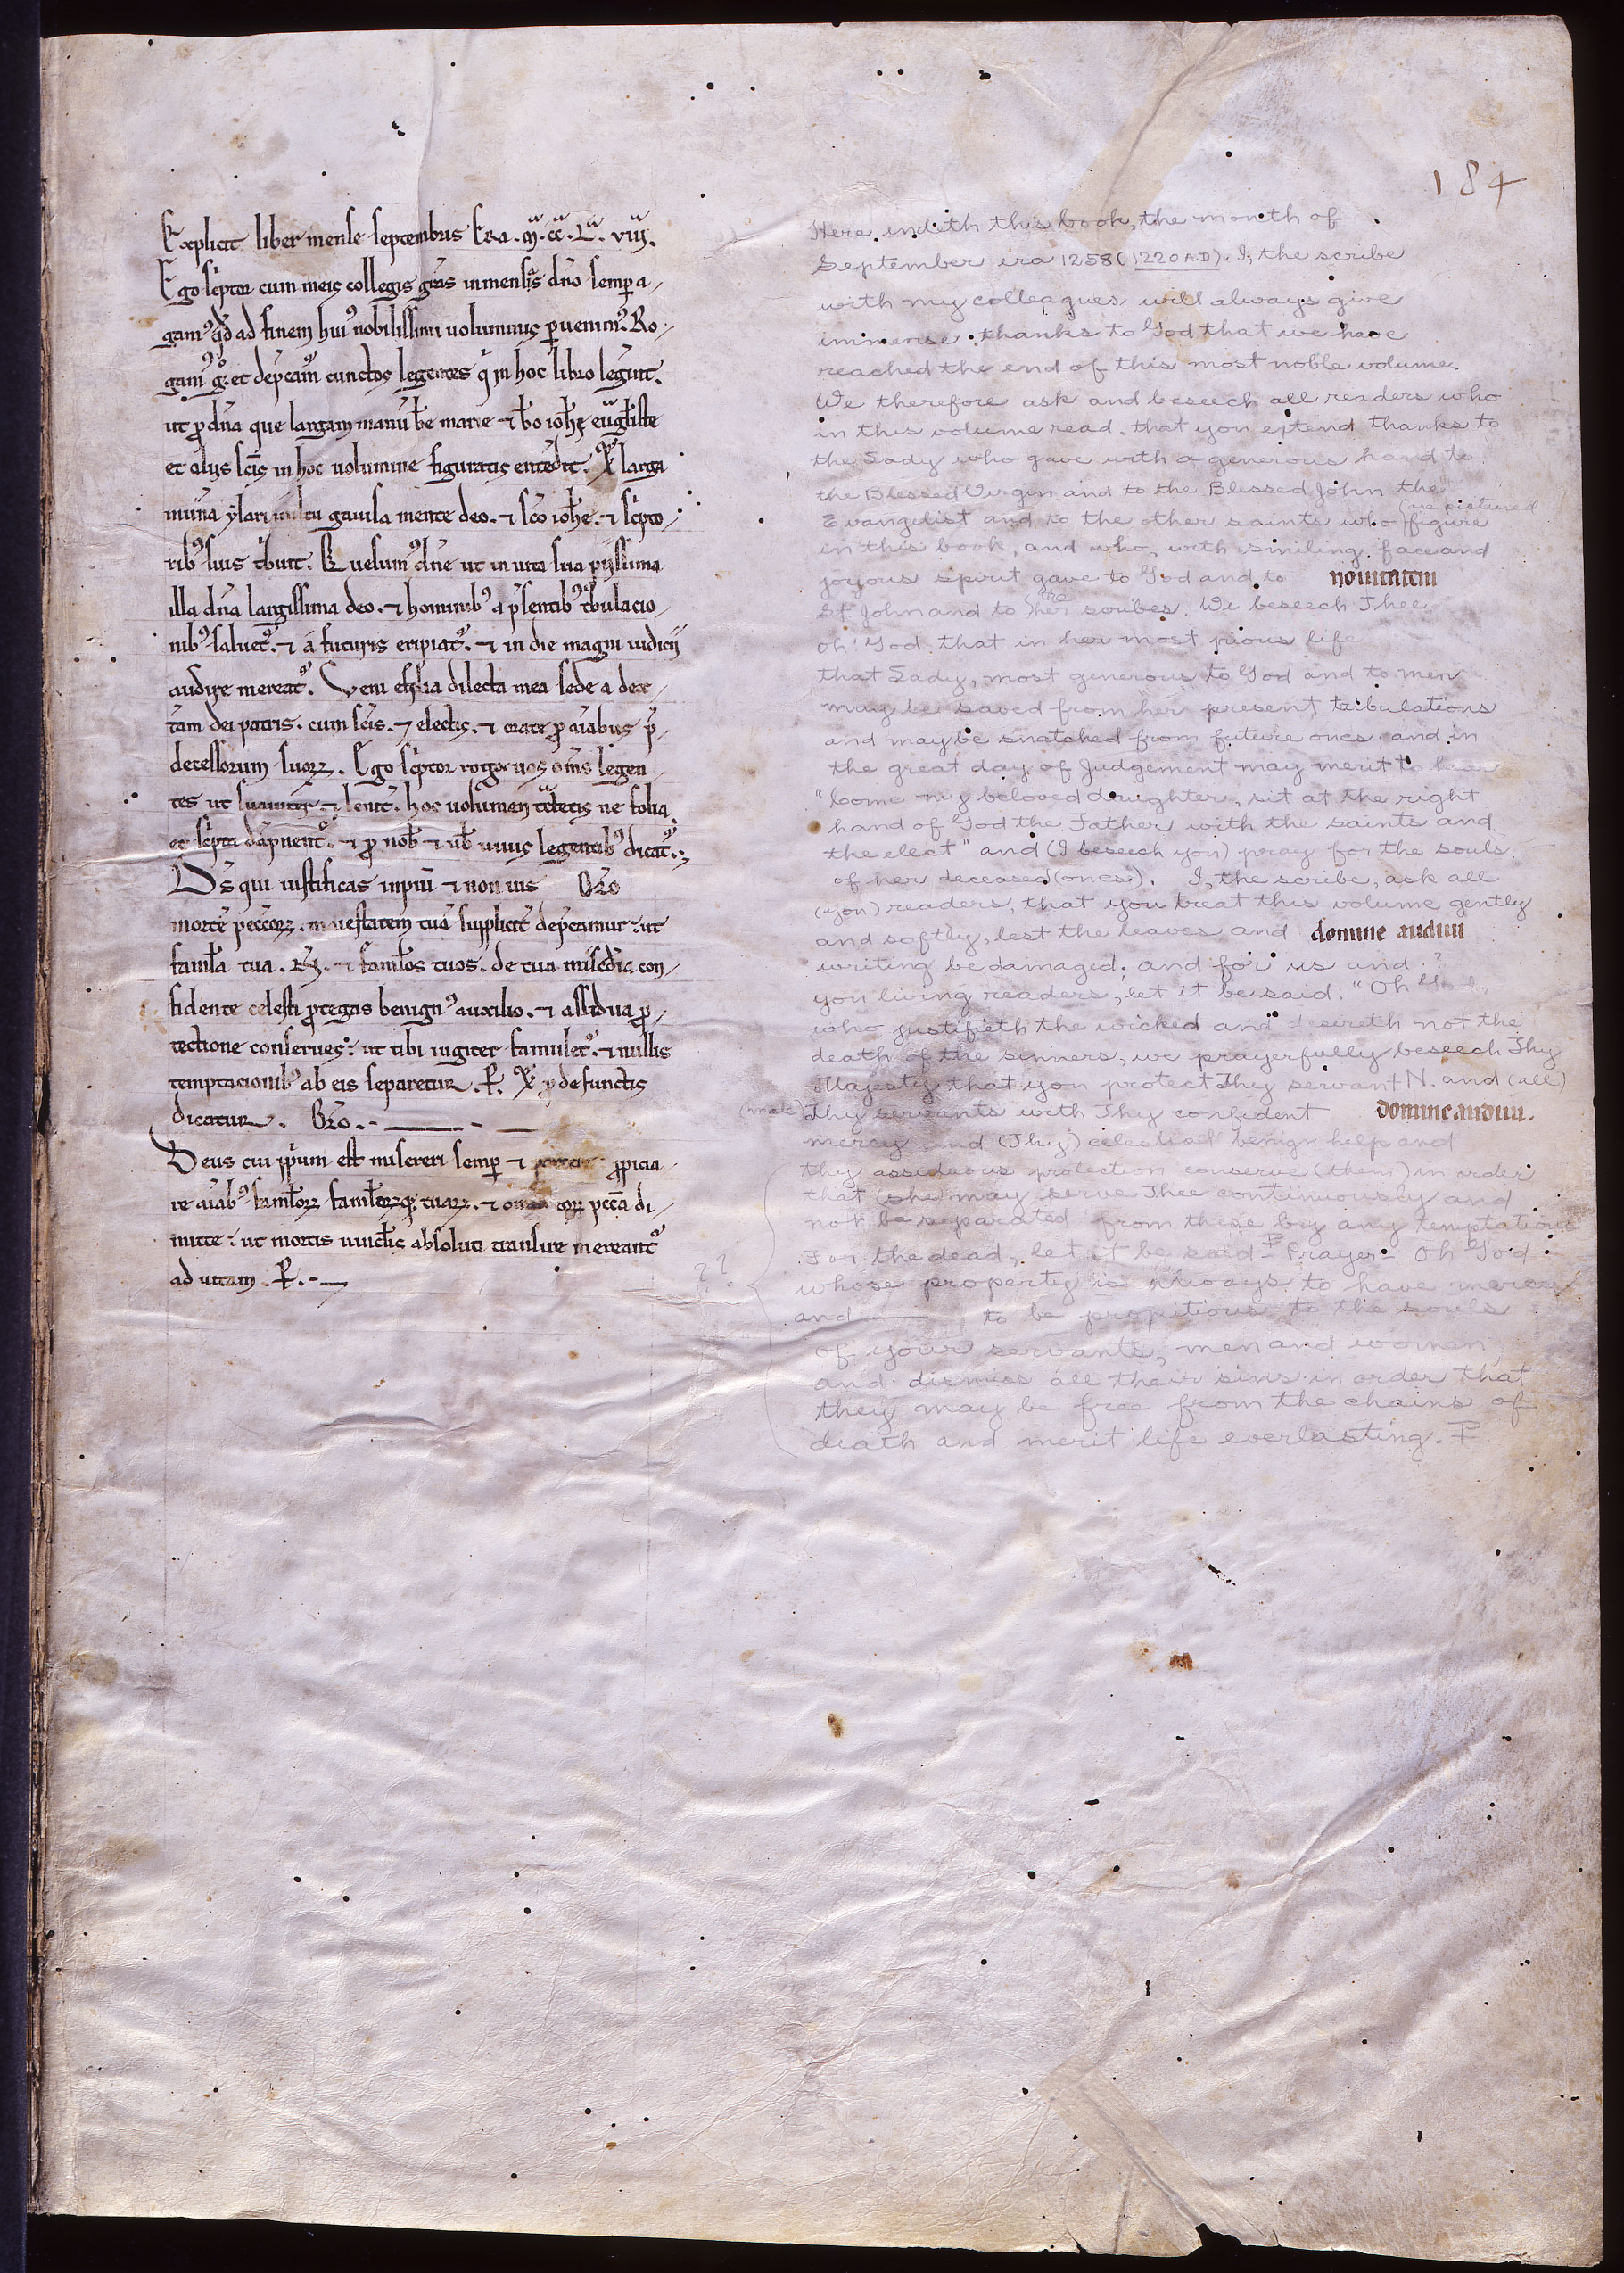 184
Explicit liber mense septembris Era. M. cc. L. viii.
Ego scptor cum meis collegis grãs inmensas dño semp a-
gam' qd ad finem hui' nobilissimi uoluminis puenim'. Ro-
gam' g° et depcam' cunctos legentes q in hoc libro legunt.
ut p dña que largam manũ be marie ⁊ bo iohe euglste
et aliis scis in hoc uolumine figuratis
munã ylari uultu gauisa mente deo. ⁊ sco iohe. ⁊ scpto-
rib' suis tbuit. Quesum' dñe ut in uita sua piissima
illa dña largissima deo. ⁊ hominib' a psentib' tbulacio-
nib' saluet'. ⁊ a futuris eripiat'. ⁊ in die magni iudicii
audire mereat'. Veni filia dilecta mea sede a dex-
tam dei patris. cum scis. ⁊ electis. ⁊ orate p aĩabus p-
decessorum suorꝝ. Ego scptor rogo uos oms legen-
tes ut suauiter ⁊ leni͛t. hoc uolumen tctetis ne folia
et scpta dãpnent'. ⁊ p nob ⁊ ub uiuis legentib' dicat'.
Ds qui iustificas inpiũ ⁊ non uis Oro
mortẽ peccorꝝ. maiestatem tuã supplicit depcamur: ut
famla tua. N. ⁊ famlos tuos. de tua miscdia con-
fidente celesti ptegas benign' auxilio. ⁊ assidua p-
tectione conserues: ut tibi iugiter famulet'. ⁊ nullis
temptacionib' ab eis separetur. P. p defunctis
dicatur. Oro.
Deus cui ppum est misereri semp ⁊ ppicia-
re aiab' famlorꝝ famlarꝝq; tuarꝝ. ⁊ eorꝝ pccã di-
mitte: ut mortis uinclis absoluti transire mereant'
ad uitam. P.
Here endeth this book, the month of
September era 1258 (1220 A.D). I, the scribe
with my colleagues will always give
immense thanks to God that we have
reached the end of this most noble volume.
We therefore ask and beseech all readers who
in this volume read, that you extend thanks to
the Lady who gave with a generous hand to
the Blessed Virgin and to the Blessed John the
(are pictured
Evangelist and to the other saints who figure
in this book, and who, with smiling face and
joyous spirit gave to God and to nouitatem
St. John and to her scribes. We beseech Thee
oh! God that in her most pious life
that Lady, most generous to God and to men
may be saved from her present tribulations
and may be snatched from future ones, and in
the great day of Judgement may merit to hear
"Come my beloved daughter, sit at the right
hand of God the Father with the saints and
the elect" and (I beseech you) pray for the souls
of her deceased (ones). I, the scribe, ask all
(you) readers, that you treat this volume gently
and softly, lest the leaves and domine audiui
writing be damaged; and for us and ?
you living readers, let it be said: "Oh God,
who justifieth the wicked and desireth not the
death of the sinners, we prayerfully beseech Thy
Majesty that you protect Thy servant N. and (all)
(male) Thy servants with Thy confident domine audiui.
mercy and (Thy) celestial benign help and
thy assiduous protection conserve (them) in order
that (she) may serve Thee continuously and
not be separated from these by any temptations
For the dead, let it be said - Prayer - Oh God
?? whose property is always to have mercy
and —— to be propitious to the souls
of your servants, men and women
and dismiss all their sins in order that
they may be free from the chains of
death and merit life everlasting. P